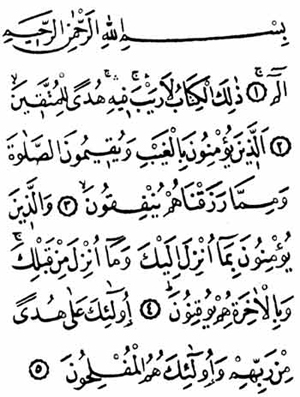 بِسْمِ اللهِ الرَّحْمٰنِ الرَّحِيمِ
الٓمٓ ۚ ﴿١﴾ ذٰلِكَ الْكِتَابُ لَارَيْبَ ۛ فِيهِ ۛ هُدًى لِلْمُتَّقِينَ ۙ
﴿٢﴾ اَلَّذِينَ يُؤْمِنُونَ بِالْغَيْبِ وَيُقِيمُونَ الصَّلٰوةَ
وَمِمَّا رَزَقْنَاهُمْ يُنْفِقُونَ ۙ ﴿٣﴾ وَالَّذِينَ
يُؤْمِنُونَ بِمَا اُنْزِلَ اِلَيْكَ وَمَا اُنْزِلَ مِنْ قَبْلِكَ ۚ
وَبِالْاٰخِرَةِ هُمْ يُوقِنُونَ ۜ ﴿٤﴾ اُولٰئِكَ عَلٰى هُدًى
مِنْ رَبِّهِمْ وَاُولٰئِكَ هُمُ الْمُفْلِحُونَ ﴿٥﴾